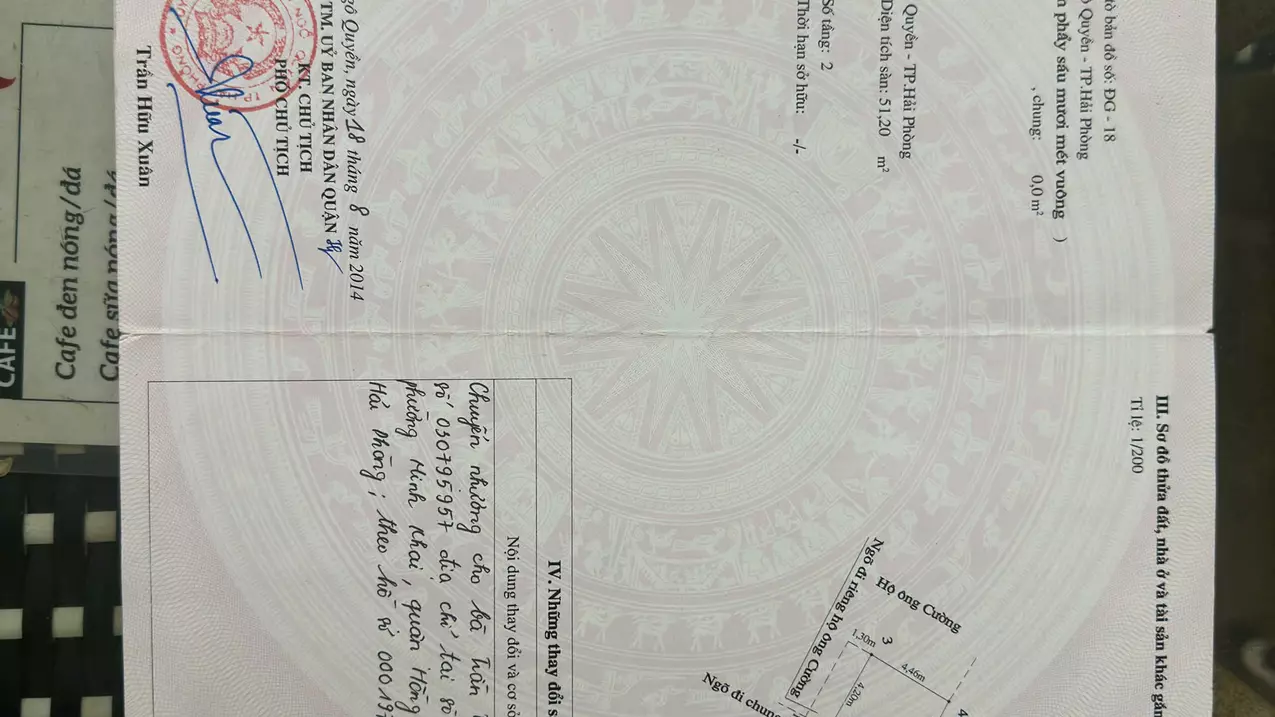 tờ bản đồ số: ĐG - 18
Quyền - TP.Hải Phòng
phẩy sáu mươi mét vuông )
, chung: 0,0 m²
Quyền - TP.Hải Phòng
Diện tích sàn: 51,20 m²
Số tầng: 2
Thời hạn sở hữu: -/-
Quyền, ngày 18 tháng 8 năm 2014
TM. UỶ BAN NHÂN DÂN QUẬN
KT. CHỦ TỊCH
PHÓ CHỦ TỊCH
Trần Hữu Xuân
III. Sơ đồ thửa đất, nhà ở và tài sản khác gắn
Tỉ lệ: 1/200
Hộ ông Cường
Ngõ đi riêng hộ ông Cường
Ngõ đi chung
3
4
1,30m
4,46m
4,20m
IV. Những thay đổi s
Nội dung thay đổi và cơ sở
Chuyển nhượng cho bà Trần
số 030795957 địa chỉ tại số
phường Minh Khai, quận Hồng
Hải Phòng; theo hồ số 00019
Cafe đen nóng/đá
Cafe sữa nóng/đá
CAFE